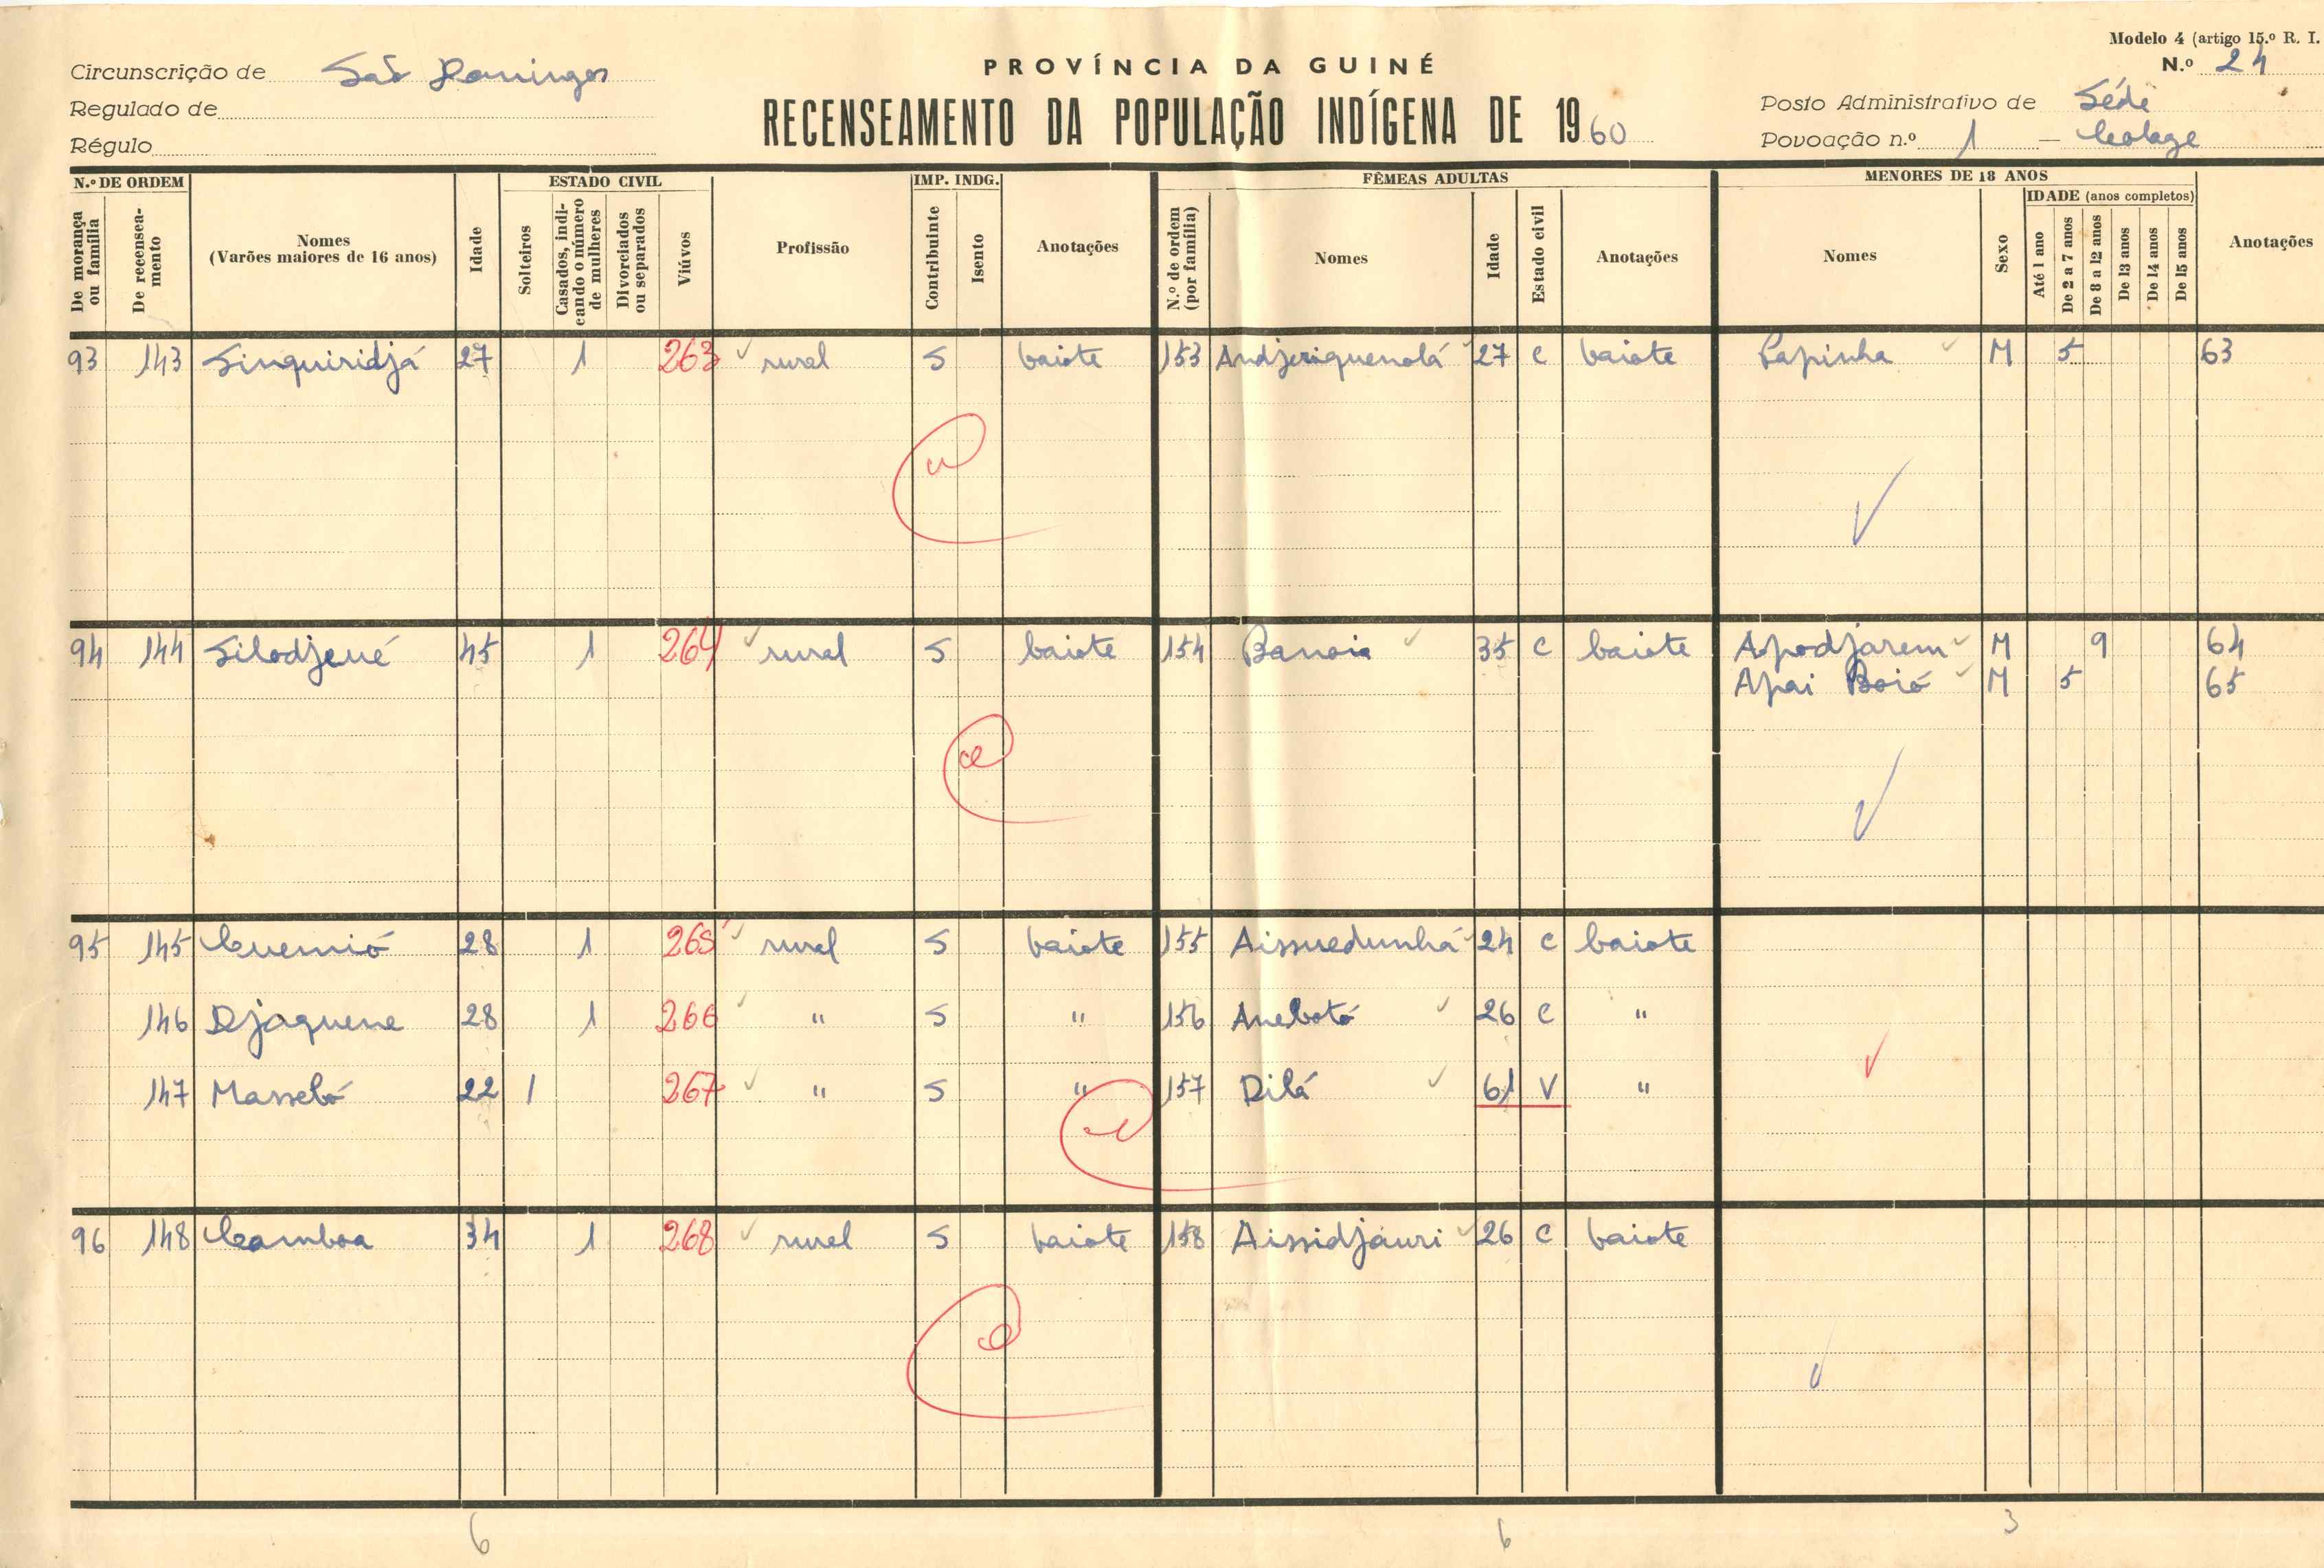 Modelo 4 (artigo 15.º R. I.
PROVÍNCIA DA GUINÉ
N.º 24
Circunscrição de São Domingos
Regulado de
Régulo
RECENSEAMENTO DA POPULAÇÃO INDÍGENA DE 1960
Posto Administrativo de Séde
Povoação n.º 1 — Colage
N.º DE ORDEM
De morança ou família
De recensea-mento
Nomes
(Varões maiores de 16 anos)
Idade
ESTADO CIVIL
Solteiros
Casados, indi-cando o número de mulheres
Divorciados ou separados
Viúvos
Profissão
IMP. INDG.
Contribuinte
Isento
Anotações
FÊMEAS ADULTAS
N.º de ordem (por família)
Nomes
Idade
Estado civil
Anotações
MENORES DE 18 ANOS
Nomes
Sexo
IDADE (anos completos)
Até 1 ano
De 2 a 7 anos
De 8 a 12 anos
De 13 anos
De 14 anos
De 15 anos
Anotações
93 143 Sinquiridjá 27 1 263 rural S baiote 153 Andjeriquenolá 27 C baiote Papinha M 5 63
94 144 Silodjené 45 1 264 rural S baiote 154 Banoia 35 C baiote Apodjarem M 9 64
Apai Boió M 5 65
95 145 Cuemió 28 1 265 rural S baiote 155 Aissuedunhá 24 C baiote
146 Djaquene 28 1 266 " S " 156 Anebotó 26 C "
147 Masseló 22 1 267 " S " 157 Dilá 61 V "
96 148 Camboa 34 1 268 rural S baiote 158 Aissidjauri 26 C baiote
6 6 3